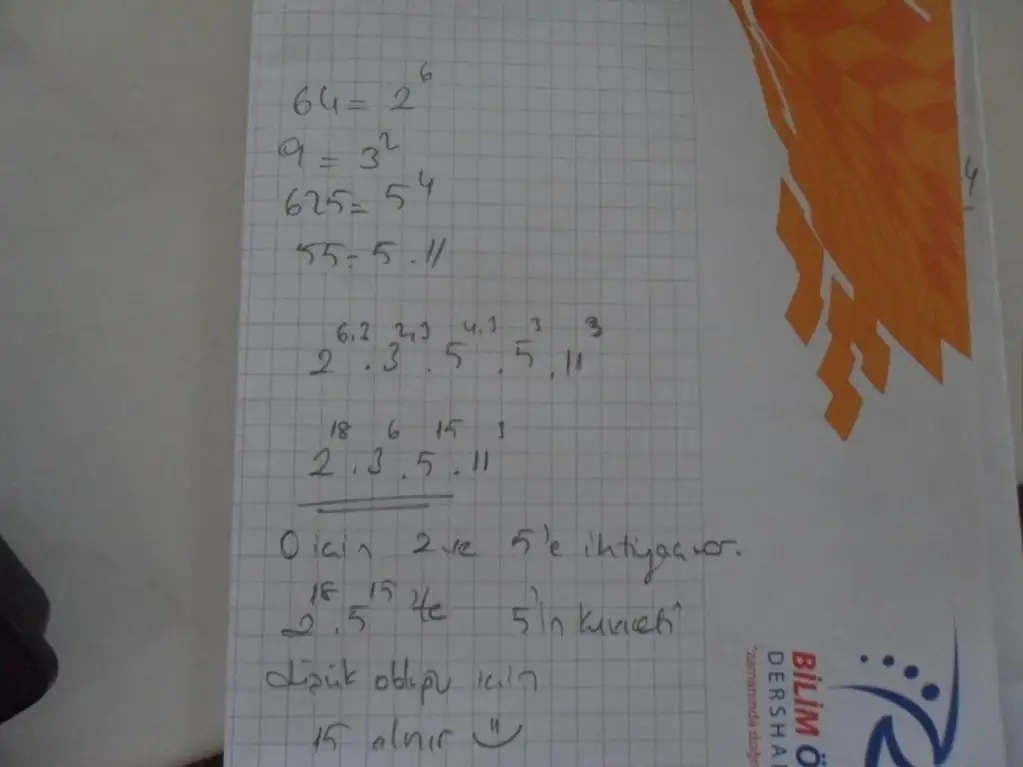 64 = 2^6
9 = 3^2
625 = 5^4
55 = 5 . 11
2^6.3 . 3^2.3 . 5^4.3 . 5^3 . 11^3
2^18 . 3^6 . 5^15 . 11^3
0 için 2 ve 5'e ihtiyaç var.
2^18 . 5^15 'te 5'in kuvveti
düşük olduğu için
15 alınır
4
BİLİM Ö
DERSHA
"zamanında doğr